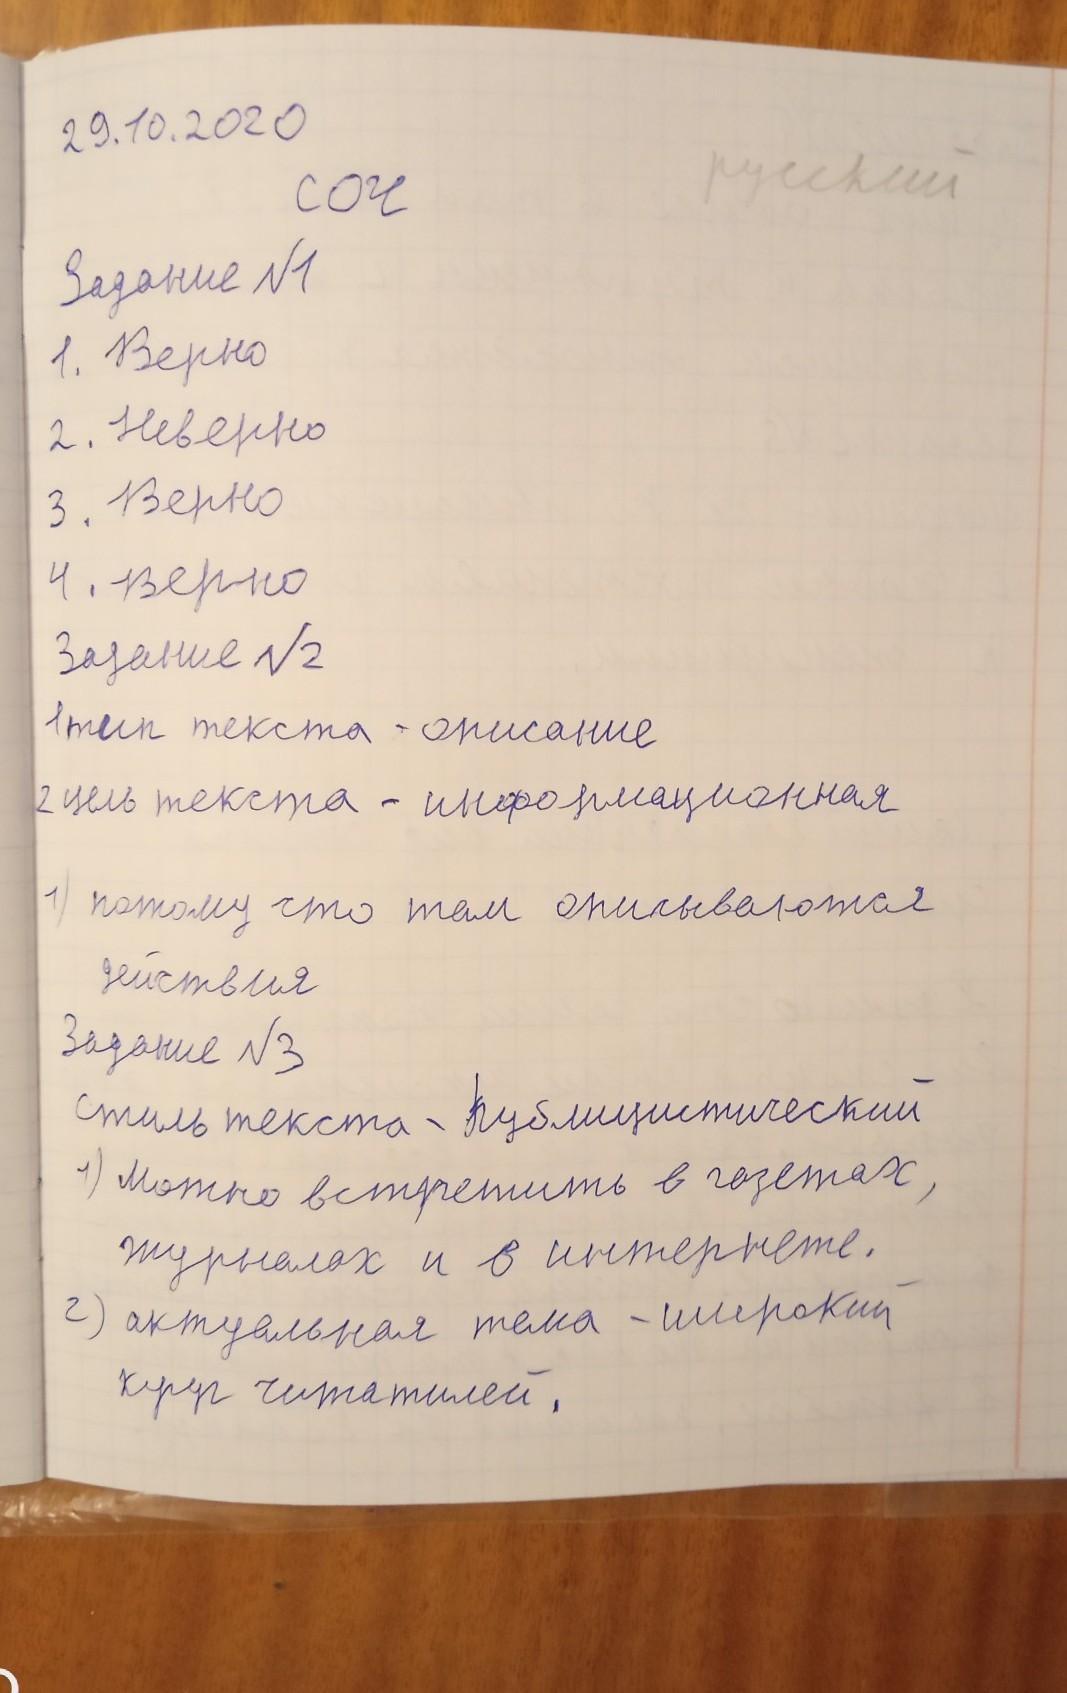 29.10.2020
русский
СОЧ
Задание №1
1. Верно
2. Неверно
3. Верно
4. Верно
Задание №2
1 тип текста - описание
2 цель текста - информационная
1) потому что там описываются
действия
Задание №3
стиль текста - публицистический
1) Можно встретить в газетах,
журналах и в интернете.
2) актуальная тема - широкий
круг читатилей.